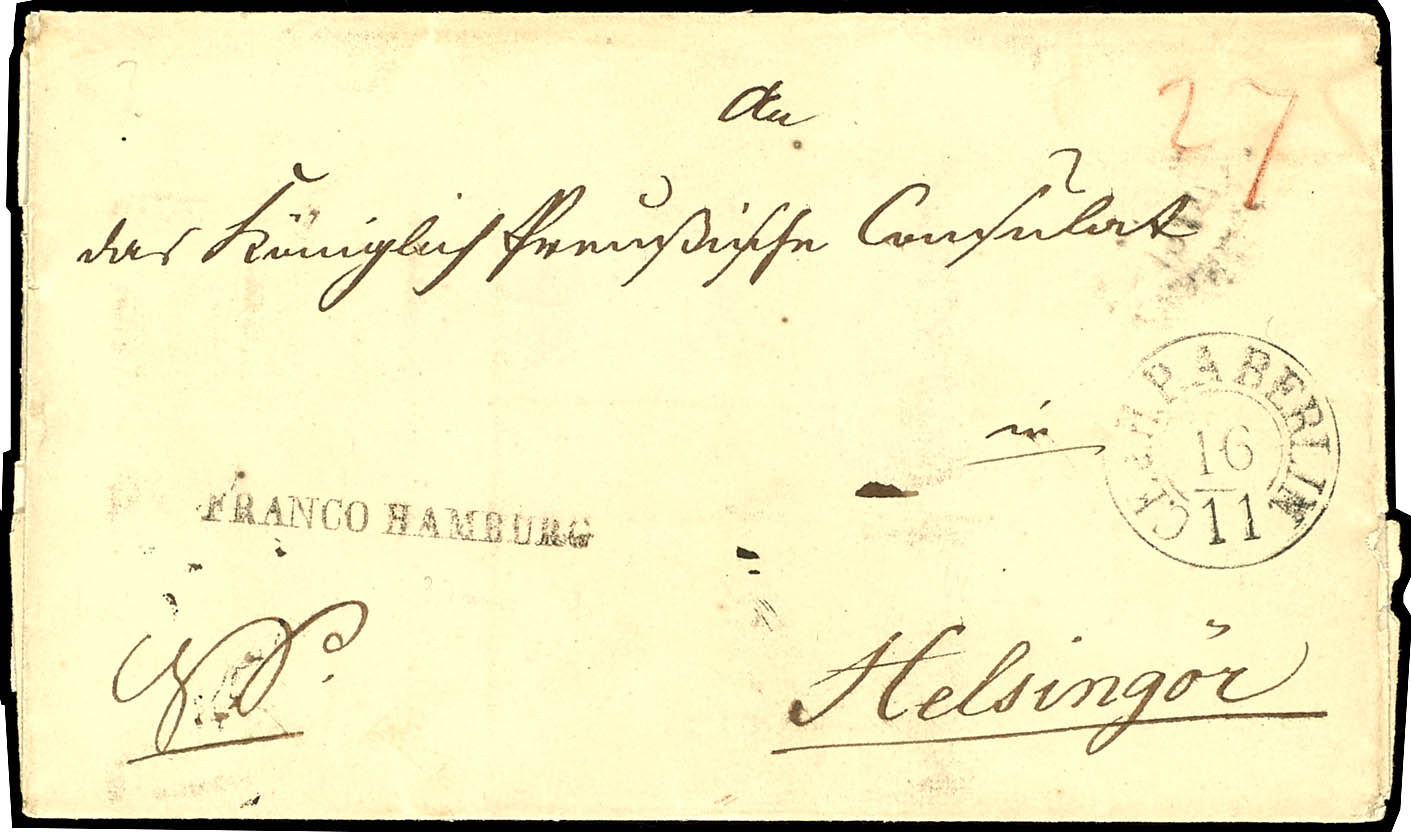 An
27
das Königlich Preußische Consulat
in
CH. & H. P. A BERLIN
16
11
FRANCO HAMBURG
Helsingör